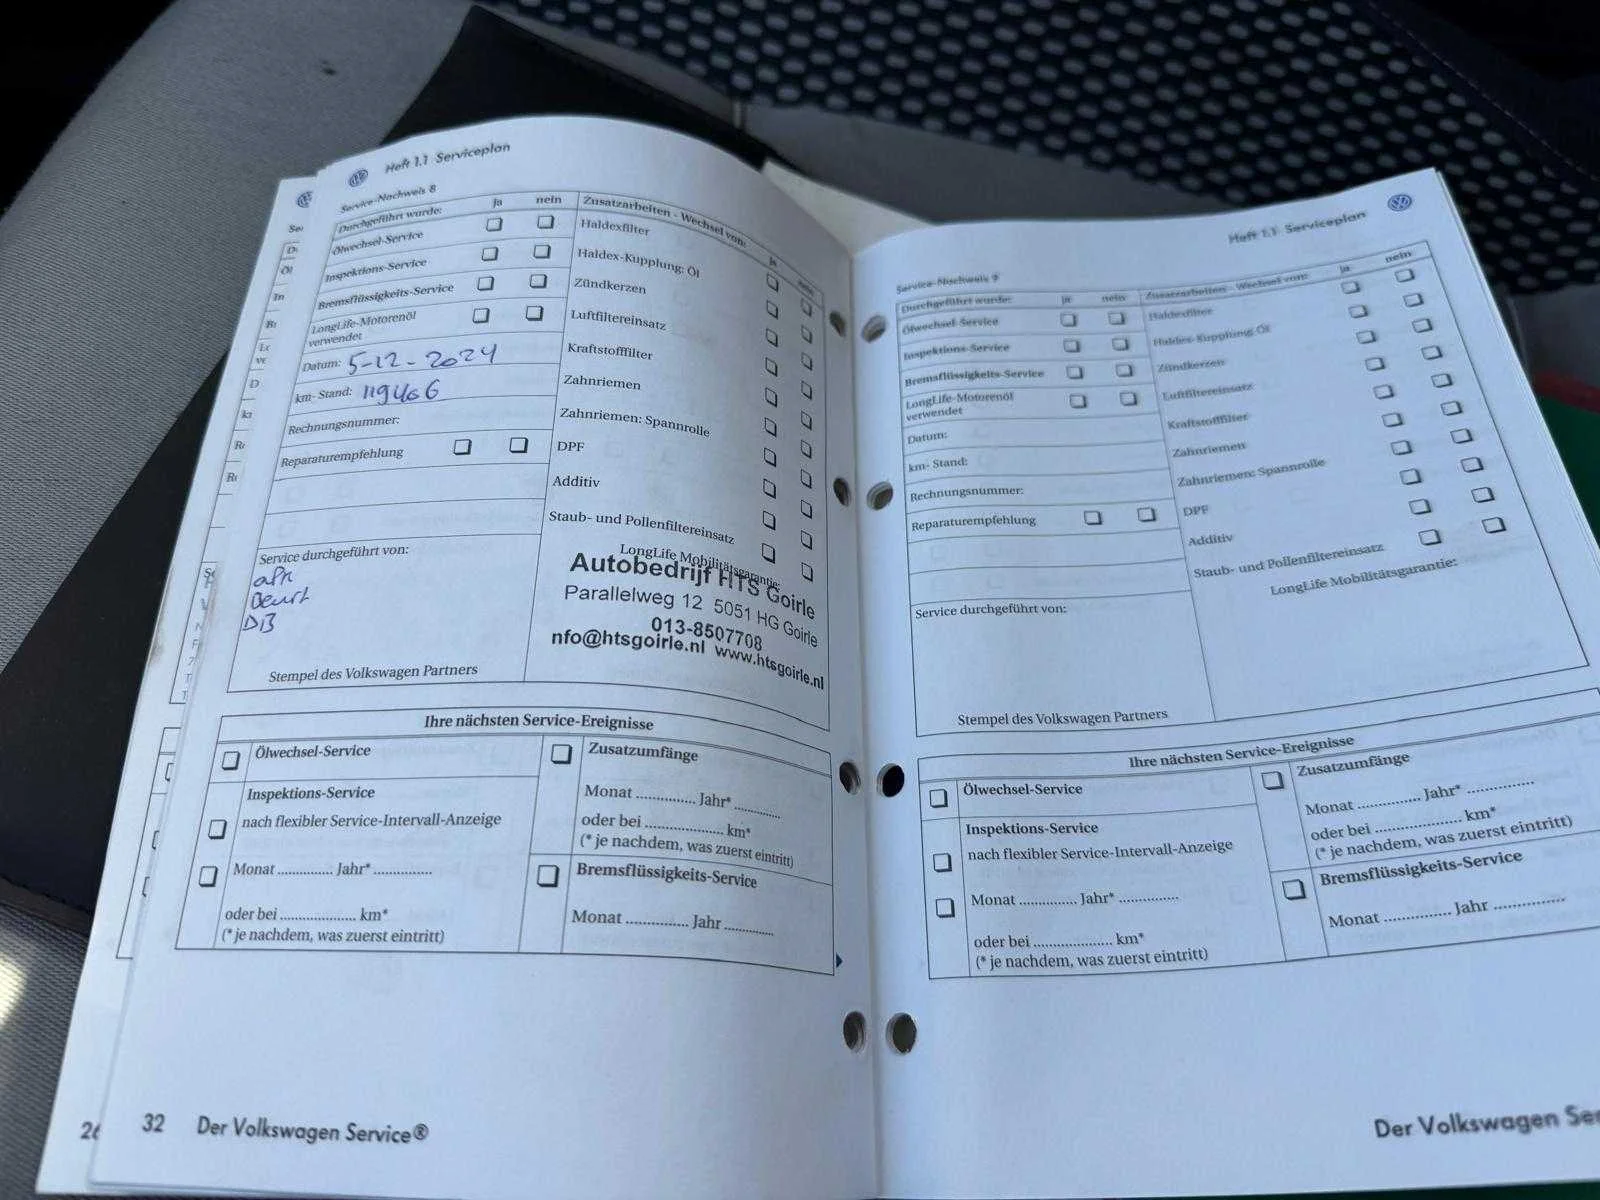 Heft 1.1 Serviceplan
Service-Nachweis 8
Durchgeführt wurde: ja nein
Ölwechsel-Service
Inspektions-Service
Bremsflüssigkeits-Service
LongLife-Motorenöl
verwendet
Datum: 5-12-2024
km- Stand:
Rechnungsnummer:
Reparaturempfehlung
Service durchgeführt von:
apk
Beurt
DB
Stempel des Volkswagen Partners
Zusatzarbeiten - Wechsel von:
ja
Haldexfilter
Haldex-Kupplung: Öl
Zündkerzen
Luftfiltereinsatz
Kraftstofffilter
Zahnriemen
Zahnriemen: Spannrolle
DPF
Additiv
Staub- und Pollenfiltereinsatz
LongLife Mobilitätsgarantie:
Autobedrijf HTS Goirle
Parallelweg 12 5051 HG Goirle
013-8507708
nfo@htsgoirle.nl www.htsgoirle.nl
Ihre nächsten Service-Ereignisse
Ölwechsel-Service
Inspektions-Service
nach flexibler Service-Intervall-Anzeige
Monat .............. Jahr* ..............
oder bei .................... km*
(* je nachdem, was zuerst eintritt)
Zusatzumfänge
Monat .............. Jahr* ............
oder bei .................... km*
(* je nachdem, was zuerst eintritt)
Bremsflüssigkeits-Service
Monat ............... Jahr ............
32 Der Volkswagen Service®
Heft 1.1 Serviceplan
Service-Nachweis 9
Durchgeführt wurde: ja nein
Ölwechsel-Service
Inspektions-Service
Bremsflüssigkeits-Service
LongLife-Motorenöl
verwendet
Datum:
km- Stand:
Rechnungsnummer:
Reparaturempfehlung
Service durchgeführt von:
Stempel des Volkswagen Partners
Zusatzarbeiten - Wechsel von: ja nein
Haldexfilter
Haldex-Kupplung: Öl
Zündkerzen
Luftfiltereinsatz
Kraftstofffilter
Zahnriemen
Zahnriemen: Spannrolle
DPF
Additiv
Staub- und Pollenfiltereinsatz
LongLife Mobilitätsgarantie:
Ihre nächsten Service-Ereignisse
Ölwechsel-Service
Inspektions-Service
nach flexibler Service-Intervall-Anzeige
Monat .............. Jahr* ..............
oder bei .................... km*
(* je nachdem, was zuerst eintritt)
Zusatzumfänge
Monat ............... Jahr* ...............
oder bei .................... km*
(* je nachdem, was zuerst eintritt)
Bremsflüssigkeits-Service
Monat ............... Jahr ...............
Der Volkswagen